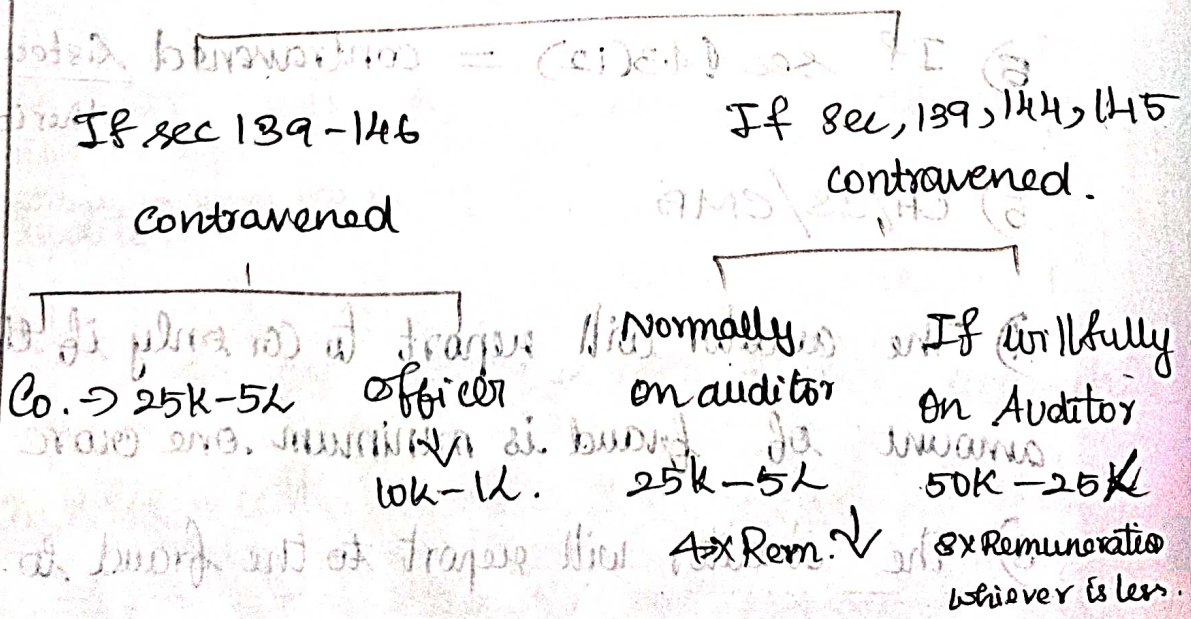 If sec 139-146
contravened
Co. → 25K-5L
officer
10K-1L.
If sec, 139, 144, 145
contravened.
Normally
on auditor
25K-5L
4x Rem. ↓
If willfully
on Auditor
50K-25L
8x Remuneratio
whiever is less.